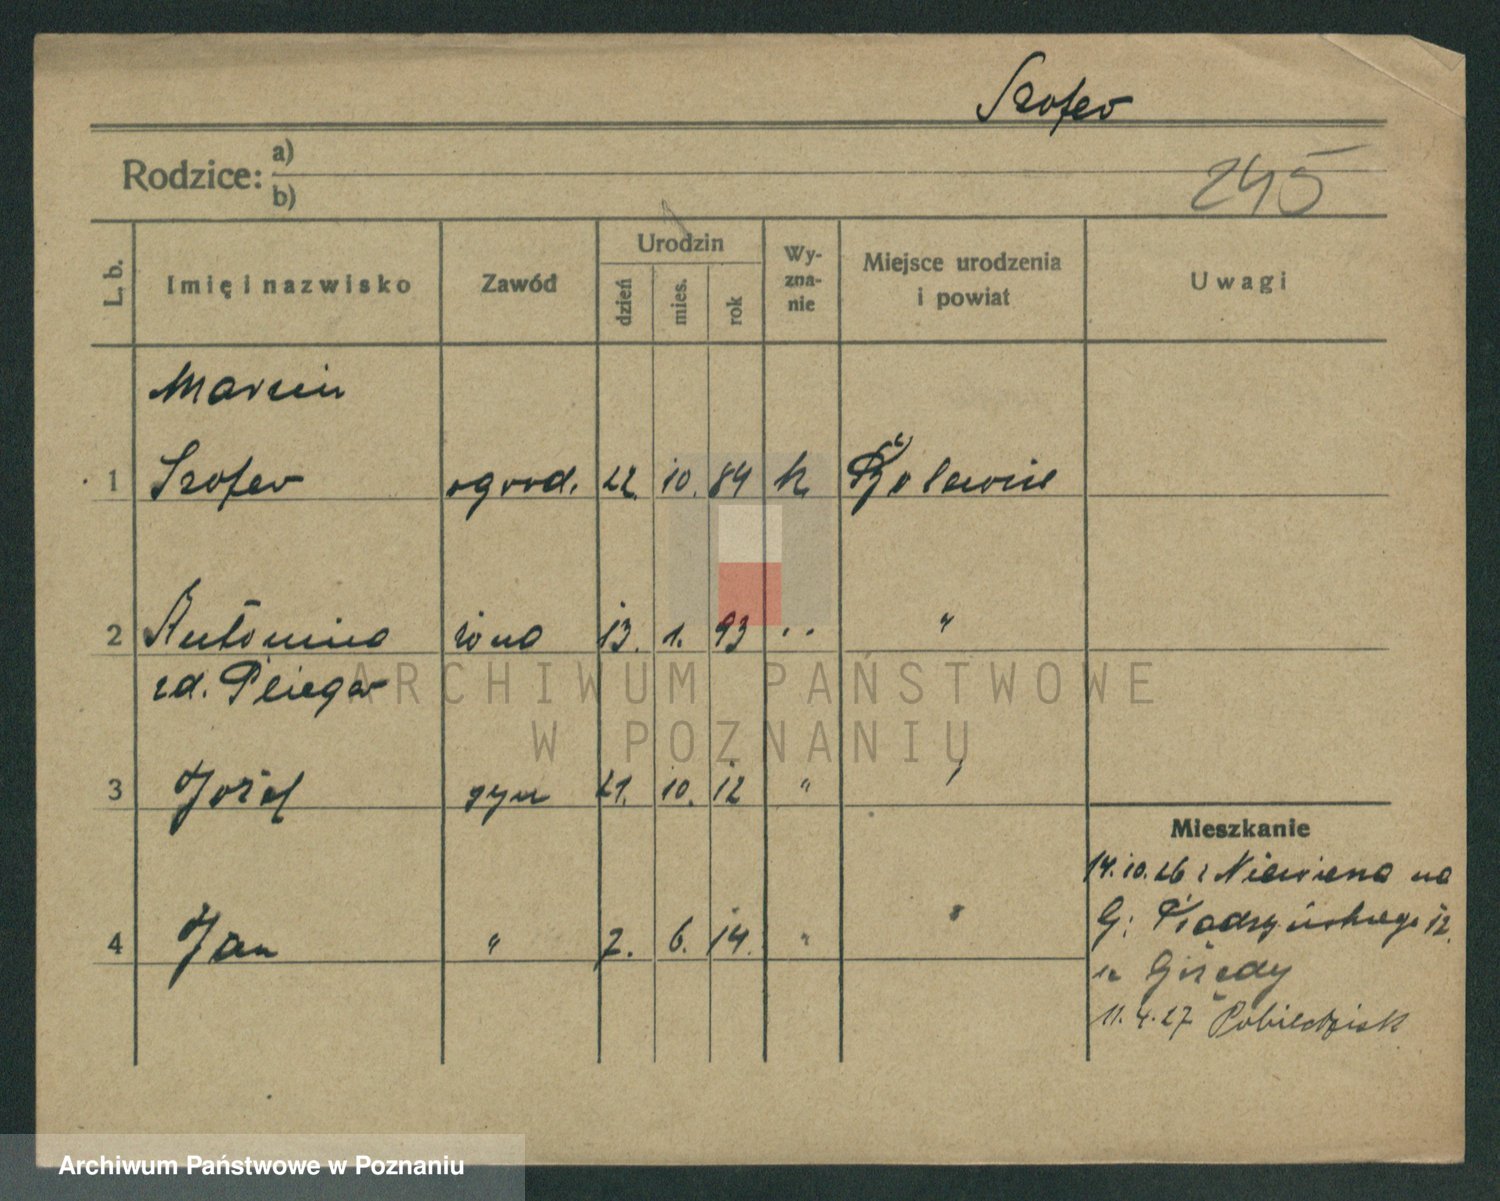 Szofer
Rodzice: a)
b)
245
L. b. Imię i nazwisko Zawód Urodzin dzień mies. rok Wy-zna-nie Miejsce urodzenia i powiat Uwagi
Marcin
1 Szofer ogrod. 22. 10. 84 k
2 Antonina żona 13. 1. 93 " "
zd.
3 Józef syn 21. 10. 12 "
4 Jan " 7. 6. 14. " "
Mieszkanie
14.10.26 z na
G. 12.
u
11.4.27 Pobiedzisk
ARCHIWUM PAŃSTWOWE
W POZNANIU
Archiwum Państwowe w Poznaniu